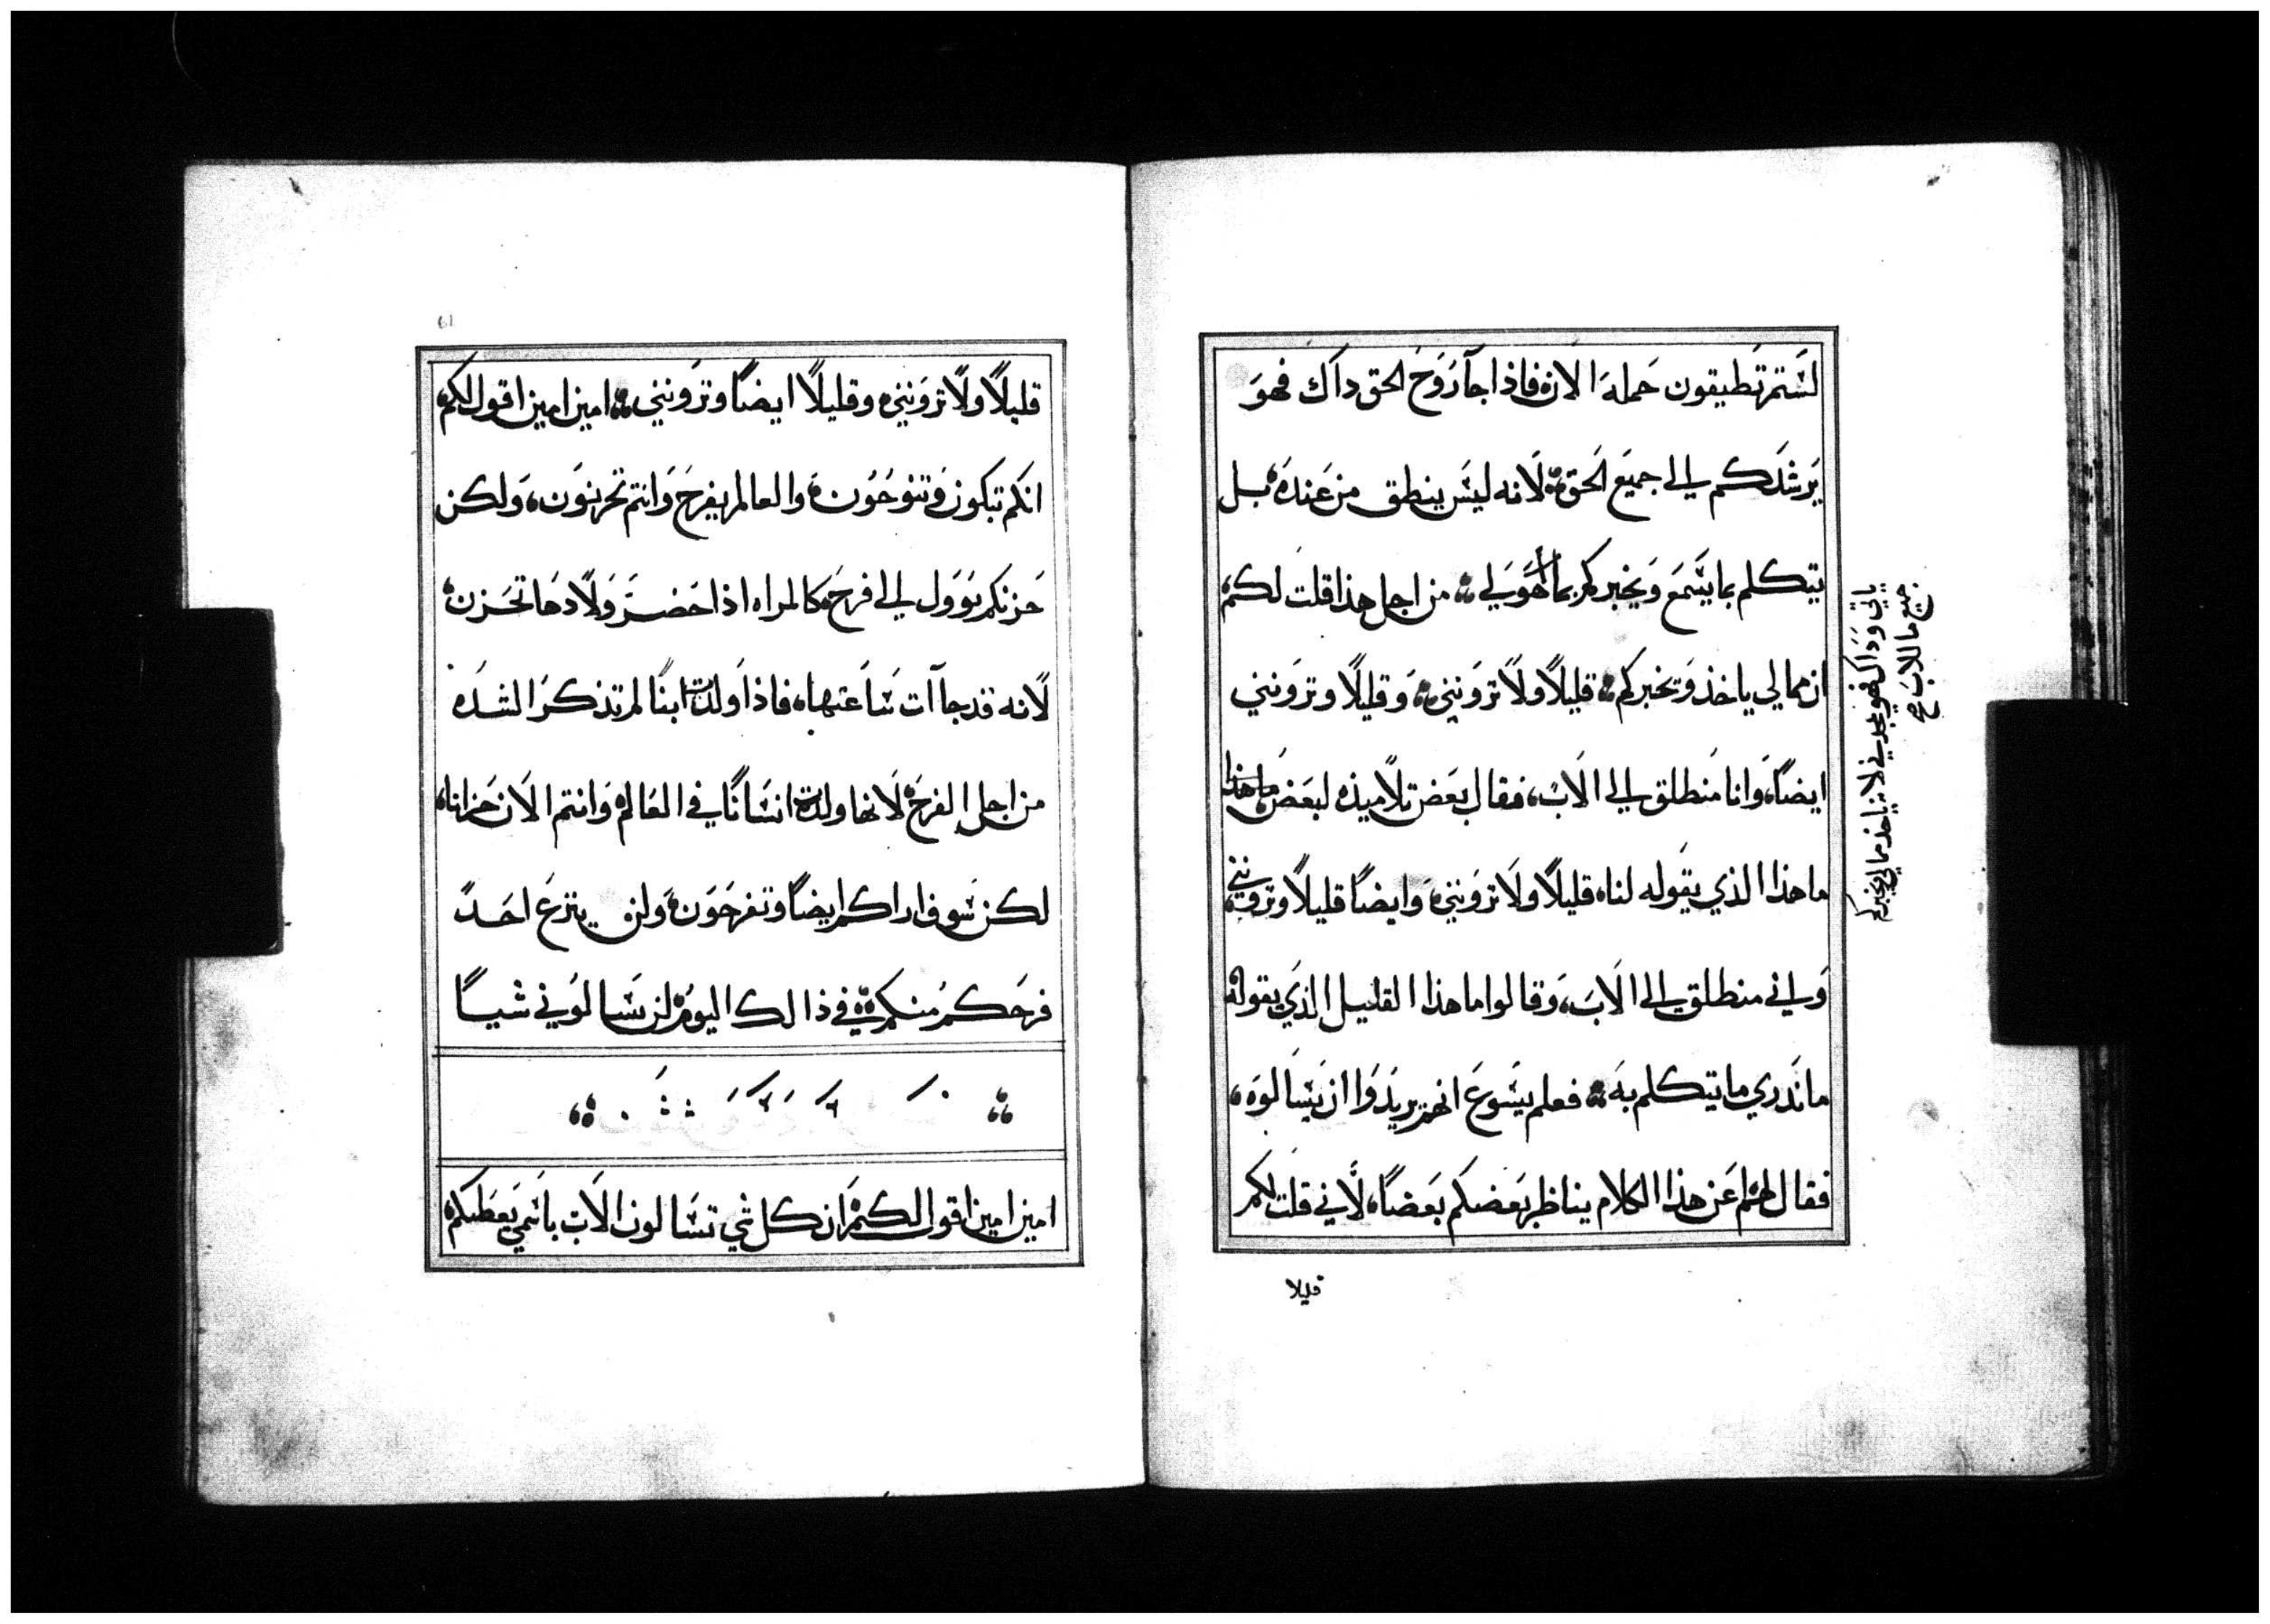 لستم تطيقون حمله الان فاذا جآ روح الحق داك فهو
يرشدكم الي جميع الحق لانه ليس ينطق من عنده بل
يتكلم بما يسمع ويخبركم بما هو لي من اجل هذا قلت لكم
ان مما لي ياخذ ويخبركم قليلاً ولا تروننى وقليلاً وترونني
ايضاً وانا منطلق الي الاب فقال بعض تلاميذه لبعض ما هذا
ما هذا الذي يقوله لنا قليلاً ولا تروننى وايضاً قليلاً وتروننى
واني منطلق الي الاب وقالوا ما هذا القليل الذي يقوله
ما ندري ما يتكلم به فعلم يسوع انهم يريدوا ان يسالوه
فقال لهم اعن هذا الكلام يناظر بعضكم بعضاً لاني قلت لكم
قليلا
ياتي وداك فهو يمجدني لانه ياخذ مما لي ويخبركم
جميع ما للاب
61
قليلاً ولا تروننى وقليلاً ايضاً وترونني امين امين اقول لكم
انكم تبكون وتنوحون والعالم يفرح وانتم تحزنون ولكن
حزنكم يوول الي فرح كالمراه اذا حضر ولادها تحزن
لانه قد جآات ساعتها فاذا ولدت ابنًا لم تذكر الشده
من اجل الفرح لانها ولدت انسانًا في العالم وانتم الان حزانا
لكن سوف اراكم ايضاً وتفرحون ولن ينزع احد
فرحكم منكم في ذالك اليوم لن تسالوني شياً
امين امين اقول لكم ان كل شي تسالون الاب باسمي يعطيكم